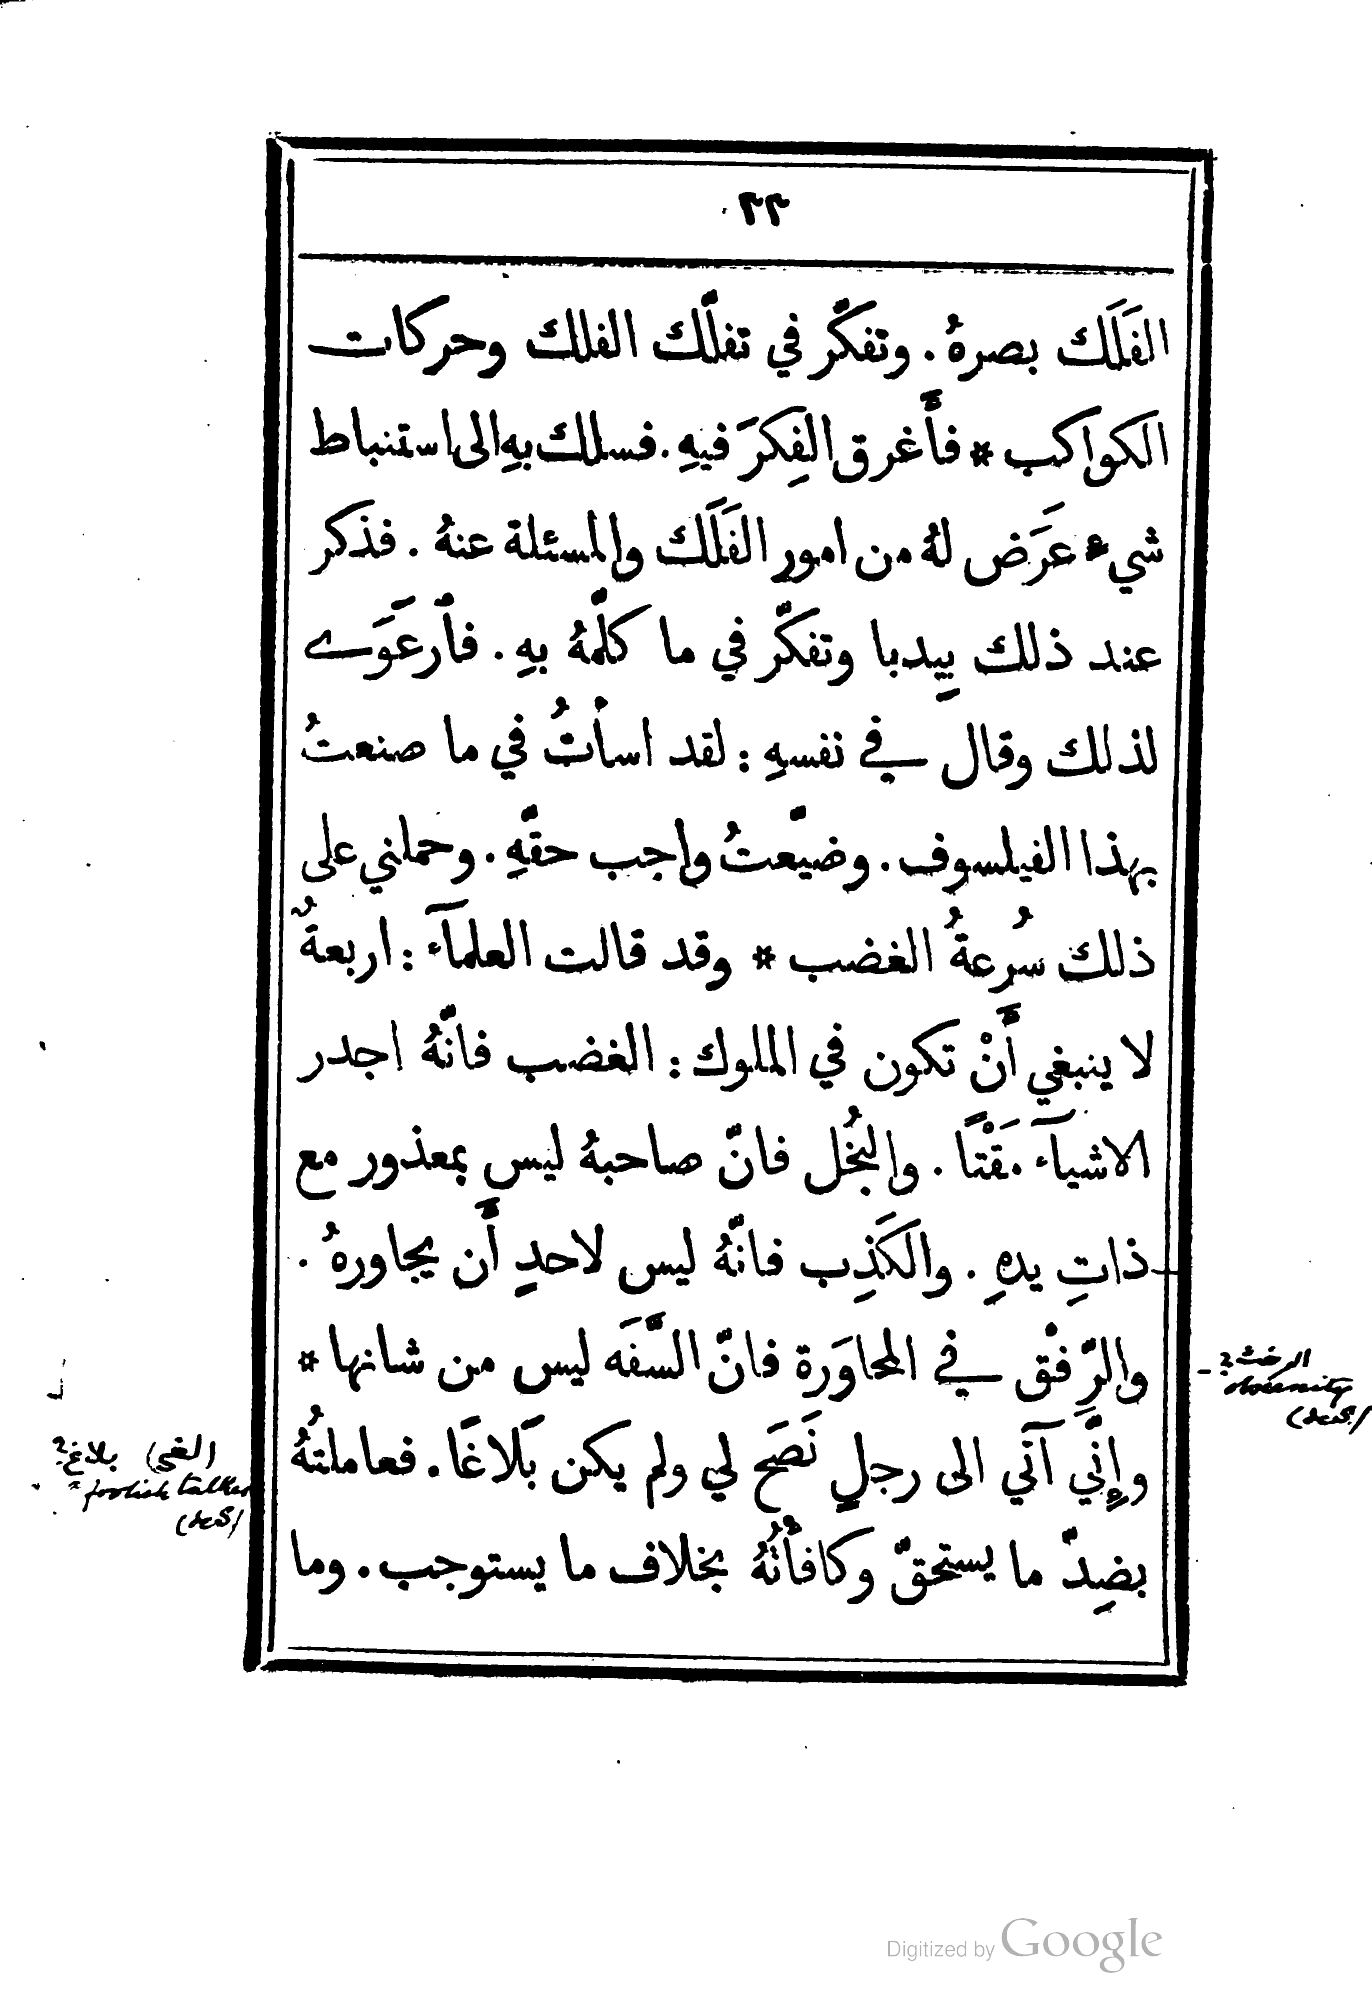 ٢٣
الفَلَك بصرهُ . وتفكّر في تفلّك الفلك وحركات
الكواكب * فأَغرق الفِكرَ فيهِ . فسلك بهِ الى استنباط
شيءٍ عَرَض لهُ من امور الفَلَك والمسئلة عنهُ . فذكر
عند ذلك بِيدبا وتفكّر في ما كلّمهُ بهِ . فٱرعَوَے
لذلك وقال في نفسهِ : لقد اسأتُ في ما صنعتُ
بهذا الفيلسوف . وضيّعتُ واجب حقّهِ . وحملني على
ذلك سُرعةُ الغضب * وقد قالت العلمآء : اربعةٌ
لا ينبغي أَنْ تكون في الملوك : الغضب فانّهُ اجدر
الاشيآء مَقْتًا . والبُخل فانّ صاحبهُ ليس بمعذور مع
ذاتِ يدهِ . والكَذِب فانّهُ ليس لاحدٍ أَن يجاورهُ .
والرِّفْق في المحاوَرة فانّ السَّفَه ليس من شانها *
وإِنّي آتي الى رجلٍ نَصَح لي ولم يكن بَلاغًا . فعاملتهُ
بضِدّ ما يستحقّ وكافأتُهُ بخلاف ما يستوجب . وما
obscenity
(deS)
بلاغ ?
foolish talker
(deS)
Digitized by Google